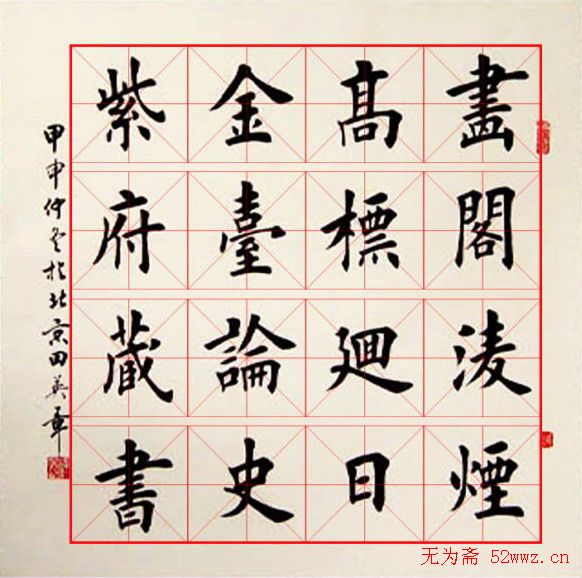 畫閣淩煙
髙標廻日
金臺論史
紫府蔵書
甲申仲冬於北京田英章
无为斋 52wwz.cn